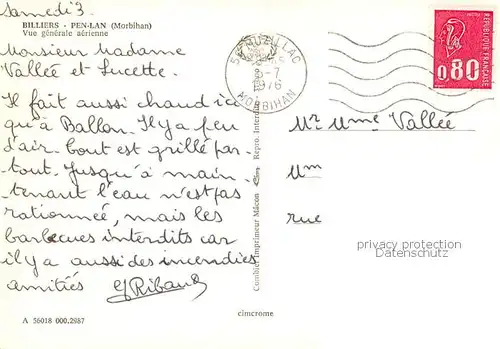 Samedi 3
BILLIERS - PEN-LAN (Morbihan)
Vue générale aérienne
Monsieur Madame
Vallée et Lucette.
Il fait aussi chaud ici
qu'à Ballon. Il y a peu
d'air. Tout est grillé par-
tout. Jusqu'à main-
tenant l'eau n'est pas
rationnée, mais les
barbecues interdits car
il y a aussi des incendies
amitiés G Ribaud
A 56018 000.2987
Combier Imprimeur Mâcon Repro. Inter
cimcrome
56 MUZILLAC
5-7
1976
MORBIHAN
0,80
REPUBLIQUE FRANÇAISE
Mr Mme Vallée
Mm
rue
privacy protection
@ararat-versand.de